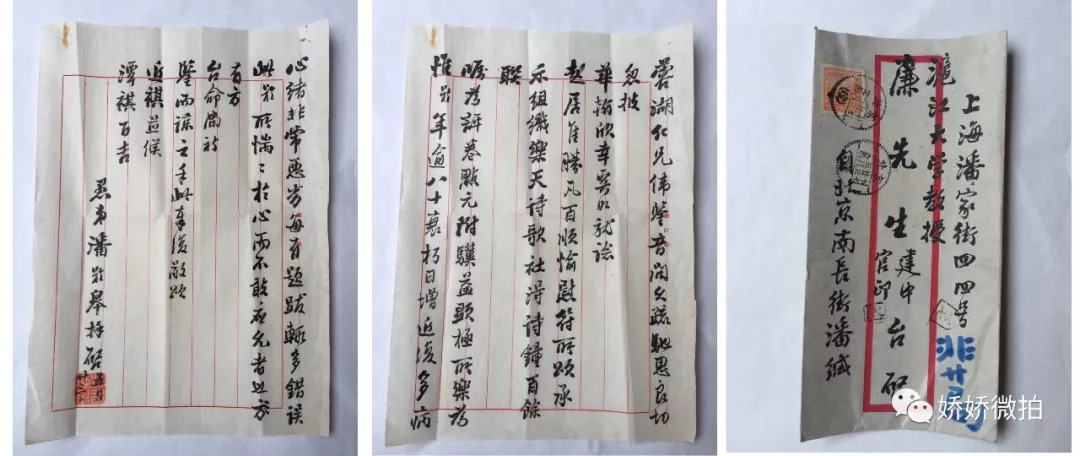 上海潘家街四四号
滬江大学教授
廉先生建中官印台啟
自北京南長街潘緘
蓉湖仁兄偉鑒音問久疏馳思良切
忽披
華翰欣幸奚如就諗
起居佳勝凡百順愉慰符所頌承
示組織樂天詩歌社得詩鐘百餘
聯
囑為評卷點元附驥益顯極所樂為
惟齡年逾八十衰朽日增近復多病
心緒非常惡劣每有題跋輒多錯誤
此齡所惴〻於心而不敢应允者也
有方
台命尚祈
鑒而諒之耑此奉復敬頌
近祺並候
潭祺百吉
愚弟潘齡皋拜啟
娇娇微拍